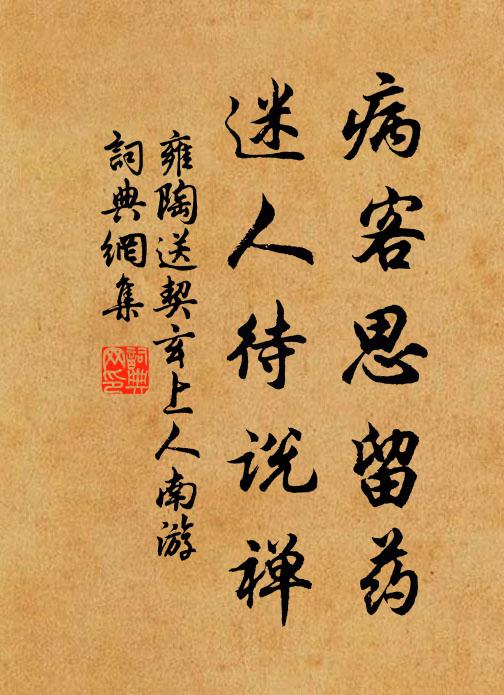 病客思留药
迷人待说禅
雍陶送契玄上人南游
詞典網集
詞典网印